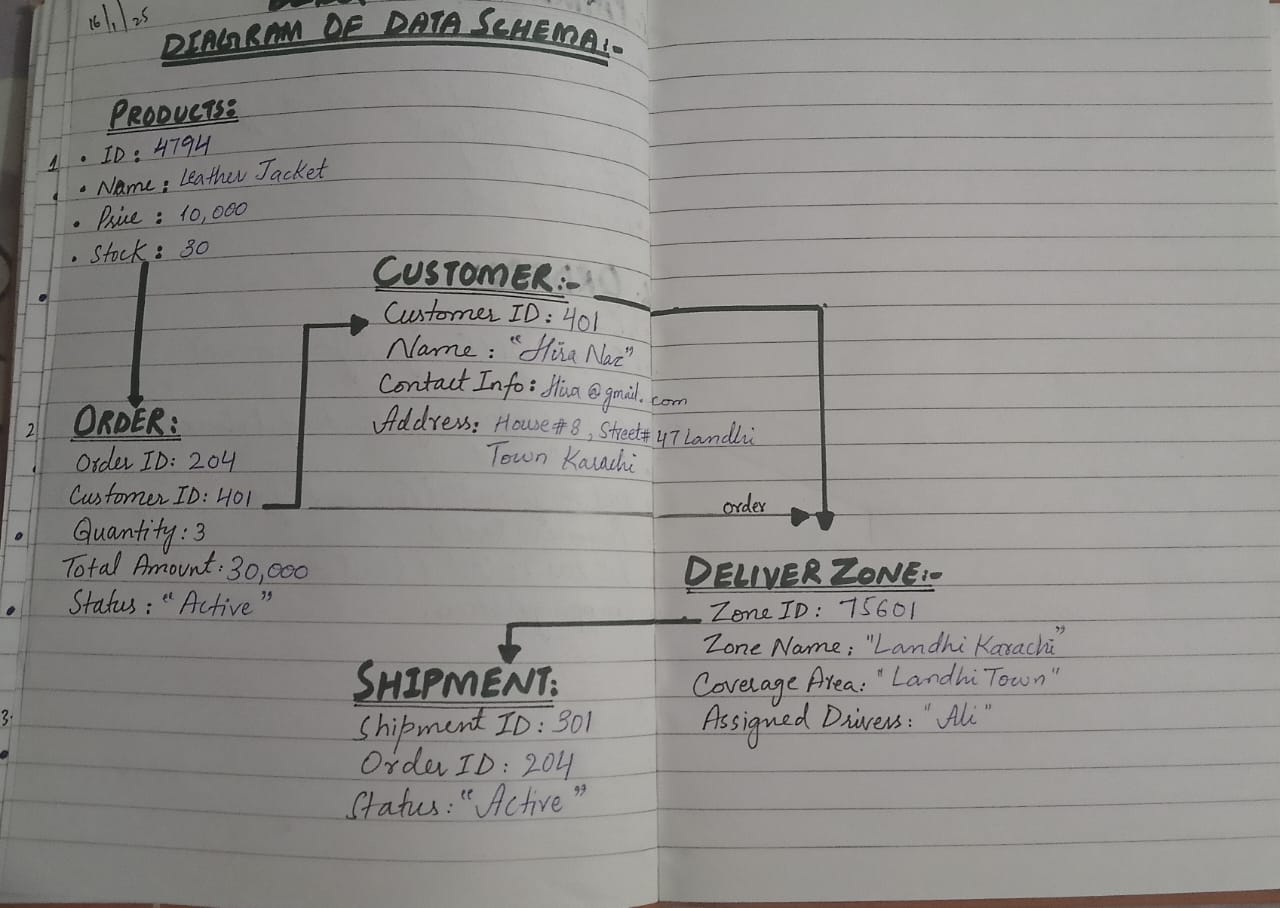 16/1/25
DIAGRAM OF DATA SCHEMA:-
PRODUCTS:
1 • ID: 4794
• Name: Leather Jacket
• Price: 10,000
• Stock: 30
CUSTOMER:-
Customer ID: 401
Name: "Hira Naz"
Contact Info: Hira@gmail.com
Address: House#8, Street#47 Landhi
Town Karachi
2 ORDER:
Order ID: 204
Customer ID: 401
Quantity: 3
Total Amount: 30,000
Status: "Active"
order
DELIVER ZONE:-
Zone ID: 75601
Zone Name: "Landhi Karachi"
Coverage Area: "Landhi Town"
Assigned Drivers: "Ali"
SHIPMENT:
3. Shipment ID: 301
Order ID: 204
Status: "Active"